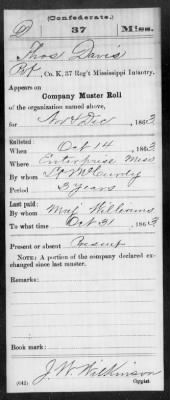 (Confederate.)
D 37 Miss.
Thos Davis
Pvt, Co. K, 37 Reg't Mississippi Infantry.
Appears on
Company Muster Roll
of the organization named above,
for Nov & Dec, 1863
Enlisted:
When Oct 14, 1863
Where Enterprise Miss
By whom McCurdy
Period 3 years
Last paid:
By whom Maj Williams
To what time Oct 31, 1863
Present or absent Present
NOTE: A portion of the company declared ex-
changed since last muster.
Remarks:
Book mark:
J. W. Wilkinson
(642) Copyist